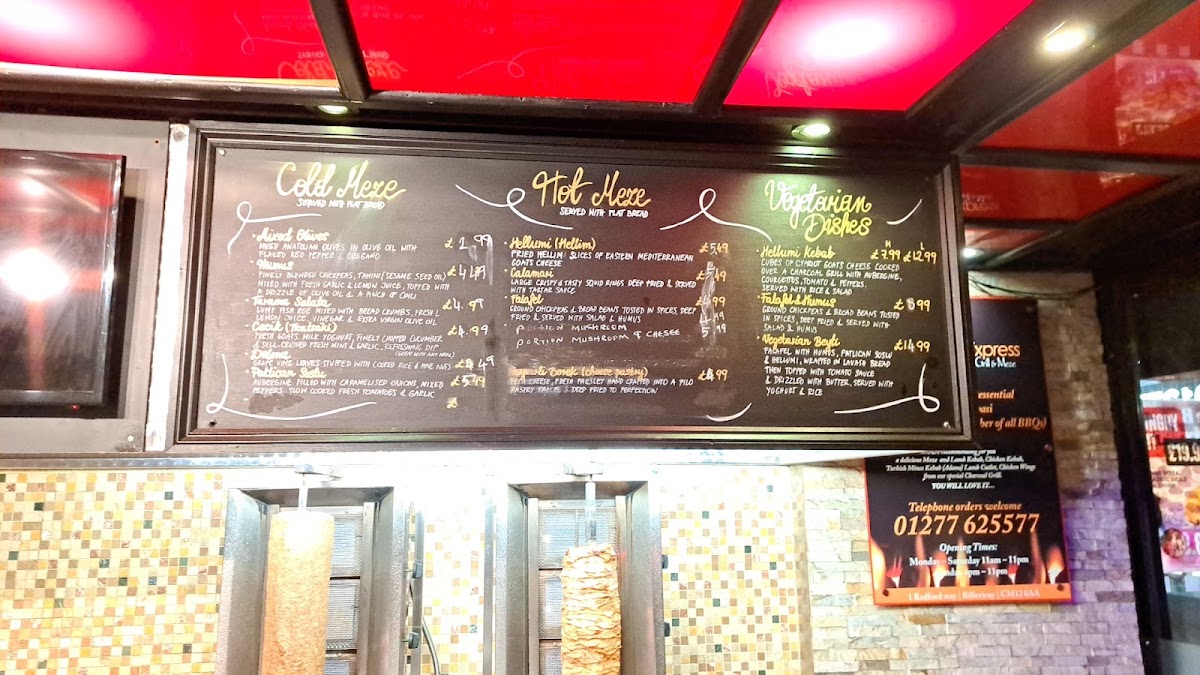 Cold Meze
SERVED WITH FLAT BREAD
• Mixed Olives
MIXED ANATOLIAN OLIVES IN OLIVE OIL WITH
FLAKED RED PEPPER & OREGANO
• Humus
FINELY BLENDED CHICKPEAS, TAHINI (SESAME SEED OIL)
MIXED WITH FRESH GARLIC & LEMON JUICE, TOPPED WITH
A DRIZZLE OF OLIVE OIL & A PINCH OF CHILI
• Tarama Salata £4.99
LUMP FISH ROE MIXED WITH BREAD CRUMBS, FRESH
LEMON JUICE, VINEGAR & EXTRA VIRGIN OLIVE OIL
• Cacik (Tzatziki) £4.99
FRESH GOATS MILK YOGHURT, FINELY CHOPPED CUCUMBER
& DILL, CRUSHED FRESH MINT & GARLIC, REFRESHING DIP
(GREAT WITH ANY MEAL)
• Dolma
GRAPE VINE LEAVES STUFFED WITH COOKED RICE & PINE NUTS
• Patlican Soslu
AUBERGINE FILLED WITH CARAMELISED ONIONS, MIXED
PEPPERS, SLOW COOKED FRESH TOMATOES & GARLIC
£
Hot Meze
SERVED WITH FLAT BREAD
• Hellumi (Hellim)
FRIED HELLIM SLICES OF EASTERN MEDITERRANEAN
GOATS CHEESE
• Calamari
LARGE CRISPY & TASTY SQUID RINGS DEEP FRIED & SERVED
WITH TARTAR SAUCE
• Falafel
GROUND CHICKPEAS & BROAD BEANS TOSTED IN SPICES, DEEP
FRIED & SERVED WITH SALAD & HUMUS
PORTION MUSHROOM
PORTION MUSHROOM & CHEESE
Borek (cheese pastry)
FETA CHEESE, FRESH PARSLEY HAND CRAFTED INTO A FILO
PASTRY & DEEP FRIED TO PERFECTION
Vegetarian
Dishes
M L
• Hellumi Kebab £7.99 £12.99
CUBES OF CYPRIOT GOATS CHEESE COOKED
OVER A CHARCOAL GRILL WITH AUBERGINE,
COURGETTES, TOMATO & PEPPERS.
SERVED WITH RICE & SALAD
• Falafel & Humus £8.99
GROUND CHICKPEAS & BROAD BEANS TOSTED
IN SPICES, DEEP FRIED & SERVED WITH
SALAD & HUMUS
• Vegetarian Beyti £14.99
FALAFEL WITH HUMUS, PATLICAN SOSLU
& HELLUMI, WRAPPED IN LAVASH BREAD
THEN TOPPED WITH TOMATO SAUCE
& DRIZZLED WITH BUTTER, SERVED WITH
YOGHURT & RICE
Express
Grill & Meze
essential
ber of all BBQs)
a delicious Meze and Lamb Kebab, Chicken Kebab,
Turkish Mince Kebab (Adana) Lamb Cutlet, Chicken Wings
from our special Charcoal Grill.
YOU WILL LOVE IT...
Telephone orders welcome
01277 625577
Opening Times:
Monday - Saturday 11am - 11pm
pm - 11pm
1 Radford way | Billericay | CM12 0AA